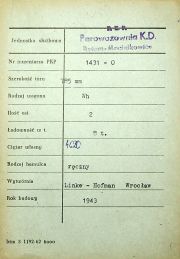 Jednostka służbowa
P.K.P.
Parowozownia K.D.
Nr inwentarza PKP 1431 - 0
Szerokość toru 785 mm
Rodzaj wagonu Wh
Ilość osi 2
Ładowność w t. 5 t.
Ciężar własny 4020
Rodzaj hamulca ręczny
Wytwórnia Linke - Hofman Wrocław
Rok budowy 1943